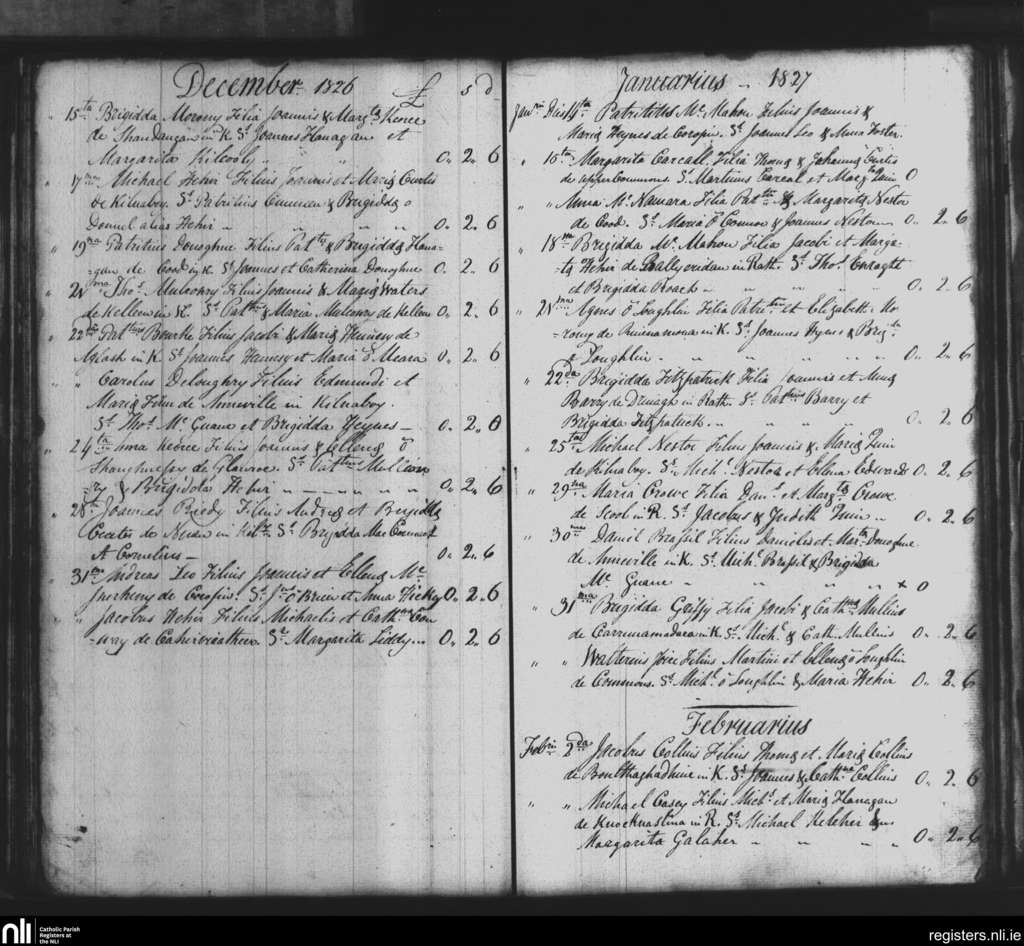 December 1826 £ s d
15ta Brigidda Morony Filia Joannis & Margta Keoce
de Shandangan in K St Joannes Flanagan et
Margarita Kilcooly „ 0.. 2.. 6
„ 17ma Michael Hehir Filius Joannis et Mariæ Curtis
de Kilnaboy. St Patritius Cuneen & Brigidda O
Donnel alias Hehir „ 0. 2. 6
„ 19na Patritius Donoghue Filius Patti & Brigidda Hana-
-gan de Cood in K St Joannes et Catherina Donoghue 0. 2. 6
„ 21ma Thos Mulcowry Filius Joannis & Maria Waters
de Kelleen in K. St Pattius & Maria de Kelleen 0.. 2.. 6
22da Pattius Bourke Filius Jacobi & Maria Hennesy de
in K St Joannes Hennesy et Maria ō Meara 0.. 2.. 6
„ „ Carolus Deloughry Filius Edmundi et
Mariæ Finn de Anneville in Kilnaboy.
St Thos. Mc Guane et Brigidda Heynes — 0. 2.. 0
„ 24ta Anna Keoice Filius Joannis & Ellenæ ō
Shaughnessy de Glanroe. St Pattius
& Brigidda Hehir — „ — „ — „ 0.. 2.. 6
„ 28va Joannes Filius Andreæ et Brigidda
de in Kil St Brigidda Mac
A Cornelius — 0.. 2.. 6
„ 31ma Andreas Leo Filius Joannis et Ellenæ Mc
Inerheney de Corofin. St Jns ō Brien et Anna Hickey 0.. 2.. 6
„ „ Jacobus Hehir Filius Michaelis et Cathnæ Con
-way de St Margarita Liddy... 0.. 2.. 6
Januarius — 1827
Janrii Dies 14ta Patritius Mc Mahon Filius Joannis &
Maria Heynes de Corofin. St Joannes Leo & Anna Foster.
„ 16ta Margarita Carcall. Filia Thomæ & Johannæ Curtis
de upper Commons. St Martinus Carcal et Margta Quin 0
„ „ Anna Mc Namara Filia Pattii & Margaritæ Nestor
de Cood. St Maria ō Connor & Joannes Nestor — 0.. 2.. 6
18va Brigidda Mc Mahon Filia Jacobi & Marga-
-tæ Hehir de Ballycridan in Rath. St Thos. Enraght
et Brigidda Roach — „ „ 0. 2. 6
„ 21ma Agnes ō Loughlin Filia Patrii et Elizabeth Mo-
-rony de in K. St Joannes Hynes & Brigta
ō Loughlin — „ „ „ 0.. 2.. 6
„ 22da Brigidda Fitzpatrick Filia Joannis et Annæ
Barry de Drinagh in Rath. St Pattius Barry et
Brigidda Fitzpatrick — „ „ 0.. 2.. 6
„ 25ta Michael Nestor Filius Joannis & Mariæ Quin
de Kilnaboy. St Michl Nestor et Ellena Edwards 0.. 2.. 6
„ 29na Maria Crowe Filia Danl. et Margta Crowe
de Scool in R. St Jacobus & Judith Quin „ 0.. 2.. 6
„ 30mus Daniel Brassil Filius Danielis et Marta Donoghue
de Anneville in K. St Michl Brassil & Brigidda
Mc Guane „ „ „ x 0
„ 31ma Brigidda Griffy Filia Jacobi & Cathnæ Mullins
de Carrunamadaca in K. St. Michl & Cath. Mullins 0.. 2.. 6
„ „ Walterus Joice Filius Martini et Ellenæ ō Loughlin
de Commons. St Michl ō Loughlin & Maria Hehir 0.. 2.. 6
Februarius
Febrii 2da Jacobus Collins Filius Thomæ et Mariæ Collins
de in K. St Joannes & Cathna Collins 0.. 2.. 6
„ „ Michael Casey Filius Michs et Mariæ Flanagan
de Knocknaslina in R. St Michael Keleher &
Margarita Galaher „ „ 0.. 2.. 6
nli Catholic Parish
Registers at
the NLI
registers.nli.ie